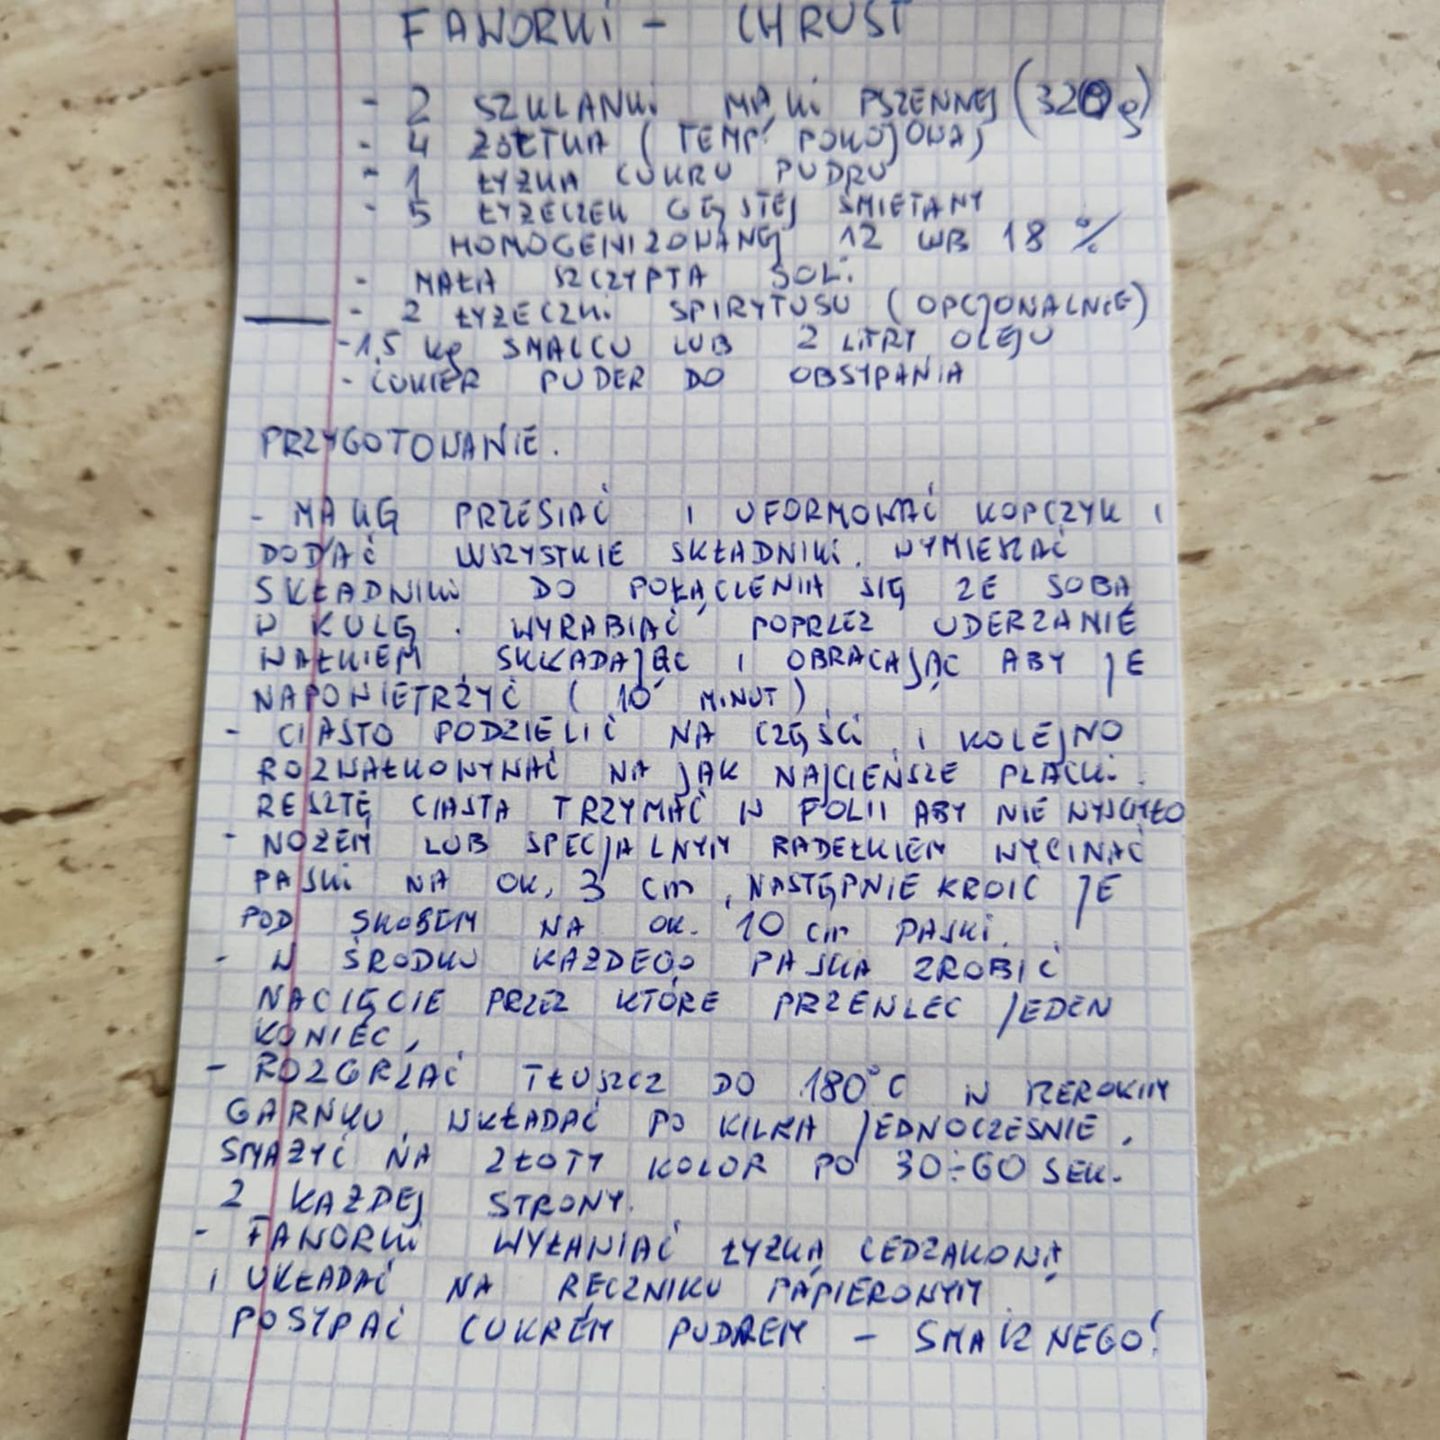 FAWORKI - CHRUST
- 2 SZKLANKI MĄKI PSZENNEJ (320g)
- 4 ŻÓŁTKA (TEMP. POKOJOWA)
- 1 ŁYŻKA CUKRU PUDRU
- 5 ŁYŻECZEK GĘSTEJ ŚMIETANY
HOMOGENIZOWANEJ 12 LUB 18 %
- MAŁA SZCZYPTA SOLI
- 2 ŁYŻECZKI SPIRYTUSU (OPCJONALNIE)
- 1,5 kg SMALCU LUB 2 LITRY OLEJU
- CUKIER PUDER DO OBSYPANIA
PRZYGOTOWANIE.
- MĄKĘ PRZESIAĆ I UFORMOWAĆ KOPCZYK I
DODAĆ WSZYSTKIE SKŁADNIKI. WYMIESZAĆ
SKŁADNIKI DO POŁĄCZENIA SIĘ ZE SOBĄ
W KULĘ. WYRABIAĆ POPRZEZ UDERZANIE
WAŁKIEM, SKŁADAJĄC I OBRACAJĄC ABY JE
NAPOWIETRZYĆ (10 MINUT)
- CIASTO PODZIELIĆ NA CZĘŚCI I KOLEJNO
ROZWAŁKOWYWAĆ NA JAK NAJCIEŃSZE PLACKI.
RESZTĘ CIASTA TRZYMAĆ W FOLII ABY NIE WYSCHŁO
- NOŻEM LUB SPECJALNYM RADEŁKIEM WYCINAĆ
PASKI NA OK. 3 cm, NASTĘPNIE KROIĆ JE
POD SKOSEM NA OK. 10 cm PASKI.
- W ŚRODKU KAŻDEGO PASKA ZROBIĆ
NACIĘCIE PRZEZ KTÓRE PRZEWLEC JEDEN
KONIEC,
- ROZGRZAĆ TŁUSZCZ DO 180°C W SZEROKIM
GARNKU, WKŁADAĆ PO KILKA JEDNOCZEŚNIE,
SMAŻYĆ NA ZŁOTY KOLOR PO 30÷60 SEK.
Z KAŻDEJ STRONY.
- FAWORKI WYŁAWIAĆ ŁYŻKĄ CEDZAKOWĄ
I UKŁADAĆ NA RĘCZNIKU PAPIEROWYM
POSYPAĆ CUKREM PUDREM - SMACZNEGO!